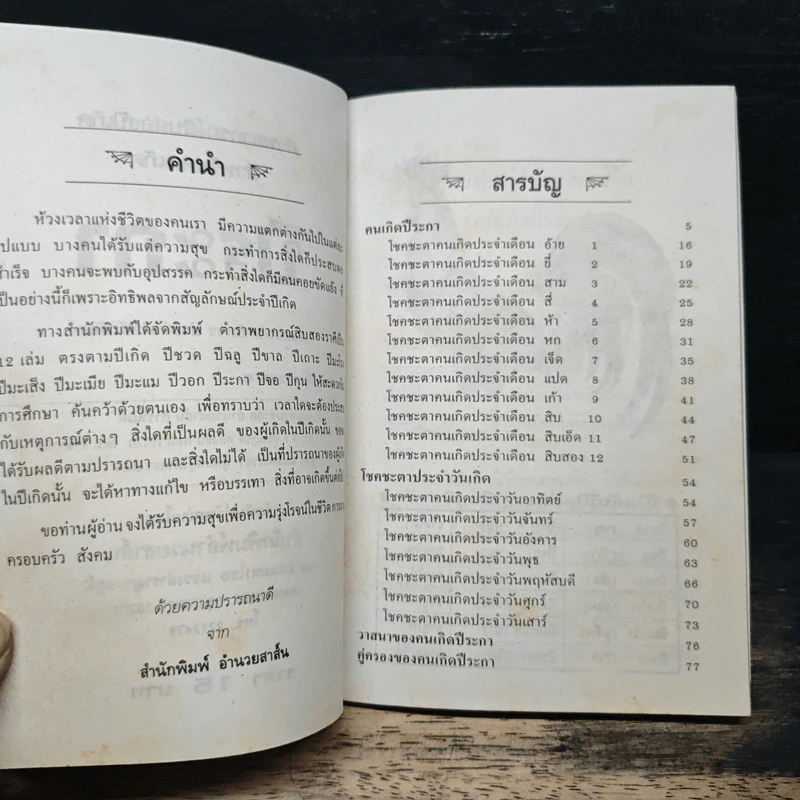 คำนำ
ห้วงเวลาแห่งชีวิตของคนเรา มีความแตกต่างกันไปในแต่ละ
รูปแบบ บางคนได้รับแต่ความสุข กระทำการสิ่งใดก็ประสบผล
สำเร็จ บางคนจะพบกับอุปสรรค กระทำสิ่งใดก็มีคนคอยขัดแย้ง
เป็นอย่างนี้ก็เพราะอิทธิพลจากสัญลักษณ์ประจำปีเกิด
ทางสำนักพิมพ์ได้จัดพิมพ์ ตำราพยากรณ์สิบสองราศีเป็น
12 เล่ม ตรงตามปีเกิด ปีชวด ปีฉลู ปีขาล ปีเถาะ
ปีมะเส็ง ปีมะเมีย ปีมะแม ปีวอก ปีระกา ปีจอ ปีกุน ให้สะดวก
การศึกษา ค้นคว้าด้วยตนเอง เพื่อทราบว่า เวลาใดจะต้อง
กับเหตุการณ์ต่างๆ สิ่งใดที่เป็นผลดี ของผู้เกิดในปีเกิดนั้น
ได้รับผลดีตามปรารถนา และสิ่งใดไม่ได้ เป็นที่ปรารถนาของ
ในปีเกิดนั้น จะได้หาทางแก้ไข หรือบรรเทา สิ่งที่อาจเกิดขึ้น
ขอท่านผู้อ่าน จงได้รับความสุขเพื่อความรุ่งโรจน์ในชีวิต การ
ครอบครัว สังคม
ด้วยความปรารถนาดี
จาก
สำนักพิมพ์ อำนวยสาส์น
สารบัญ
คนเกิดปีระกา 5
โชคชะตาคนเกิดประจำเดือน อ้าย 1 16
โชคชะตาคนเกิดประจำเดือน ยี่ 2 19
โชคชะตาคนเกิดประจำเดือน สาม 3 22
โชคชะตาคนเกิดประจำเดือน สี่ 4 25
โชคชะตาคนเกิดประจำเดือน ห้า 5 28
โชคชะตาคนเกิดประจำเดือน หก 6 31
โชคชะตาคนเกิดประจำเดือน เจ็ด 7 35
โชคชะตาคนเกิดประจำเดือน แปด 8 38
โชคชะตาคนเกิดประจำเดือน เก้า 9 41
โชคชะตาคนเกิดประจำเดือน สิบ 10 44
โชคชะตาคนเกิดประจำเดือน สิบเอ็ด 11 47
โชคชะตาคนเกิดประจำเดือน สิบสอง 12 51
โชคชะตาประจำวันเกิด 54
โชคชะตาคนเกิดประจำวันอาทิตย์ 54
โชคชะตาคนเกิดประจำวันจันทร์ 57
โชคชะตาคนเกิดประจำวันอังคาร 60
โชคชะตาคนเกิดประจำวันพุธ 63
โชคชะตาคนเกิดประจำวันพฤหัสบดี 66
โชคชะตาคนเกิดประจำวันศุกร์ 70
โชคชะตาคนเกิดประจำวันเสาร์ 73
วาสนาของคนเกิดปีระกา 76
คู่ครองของคนเกิดปีระกา 77